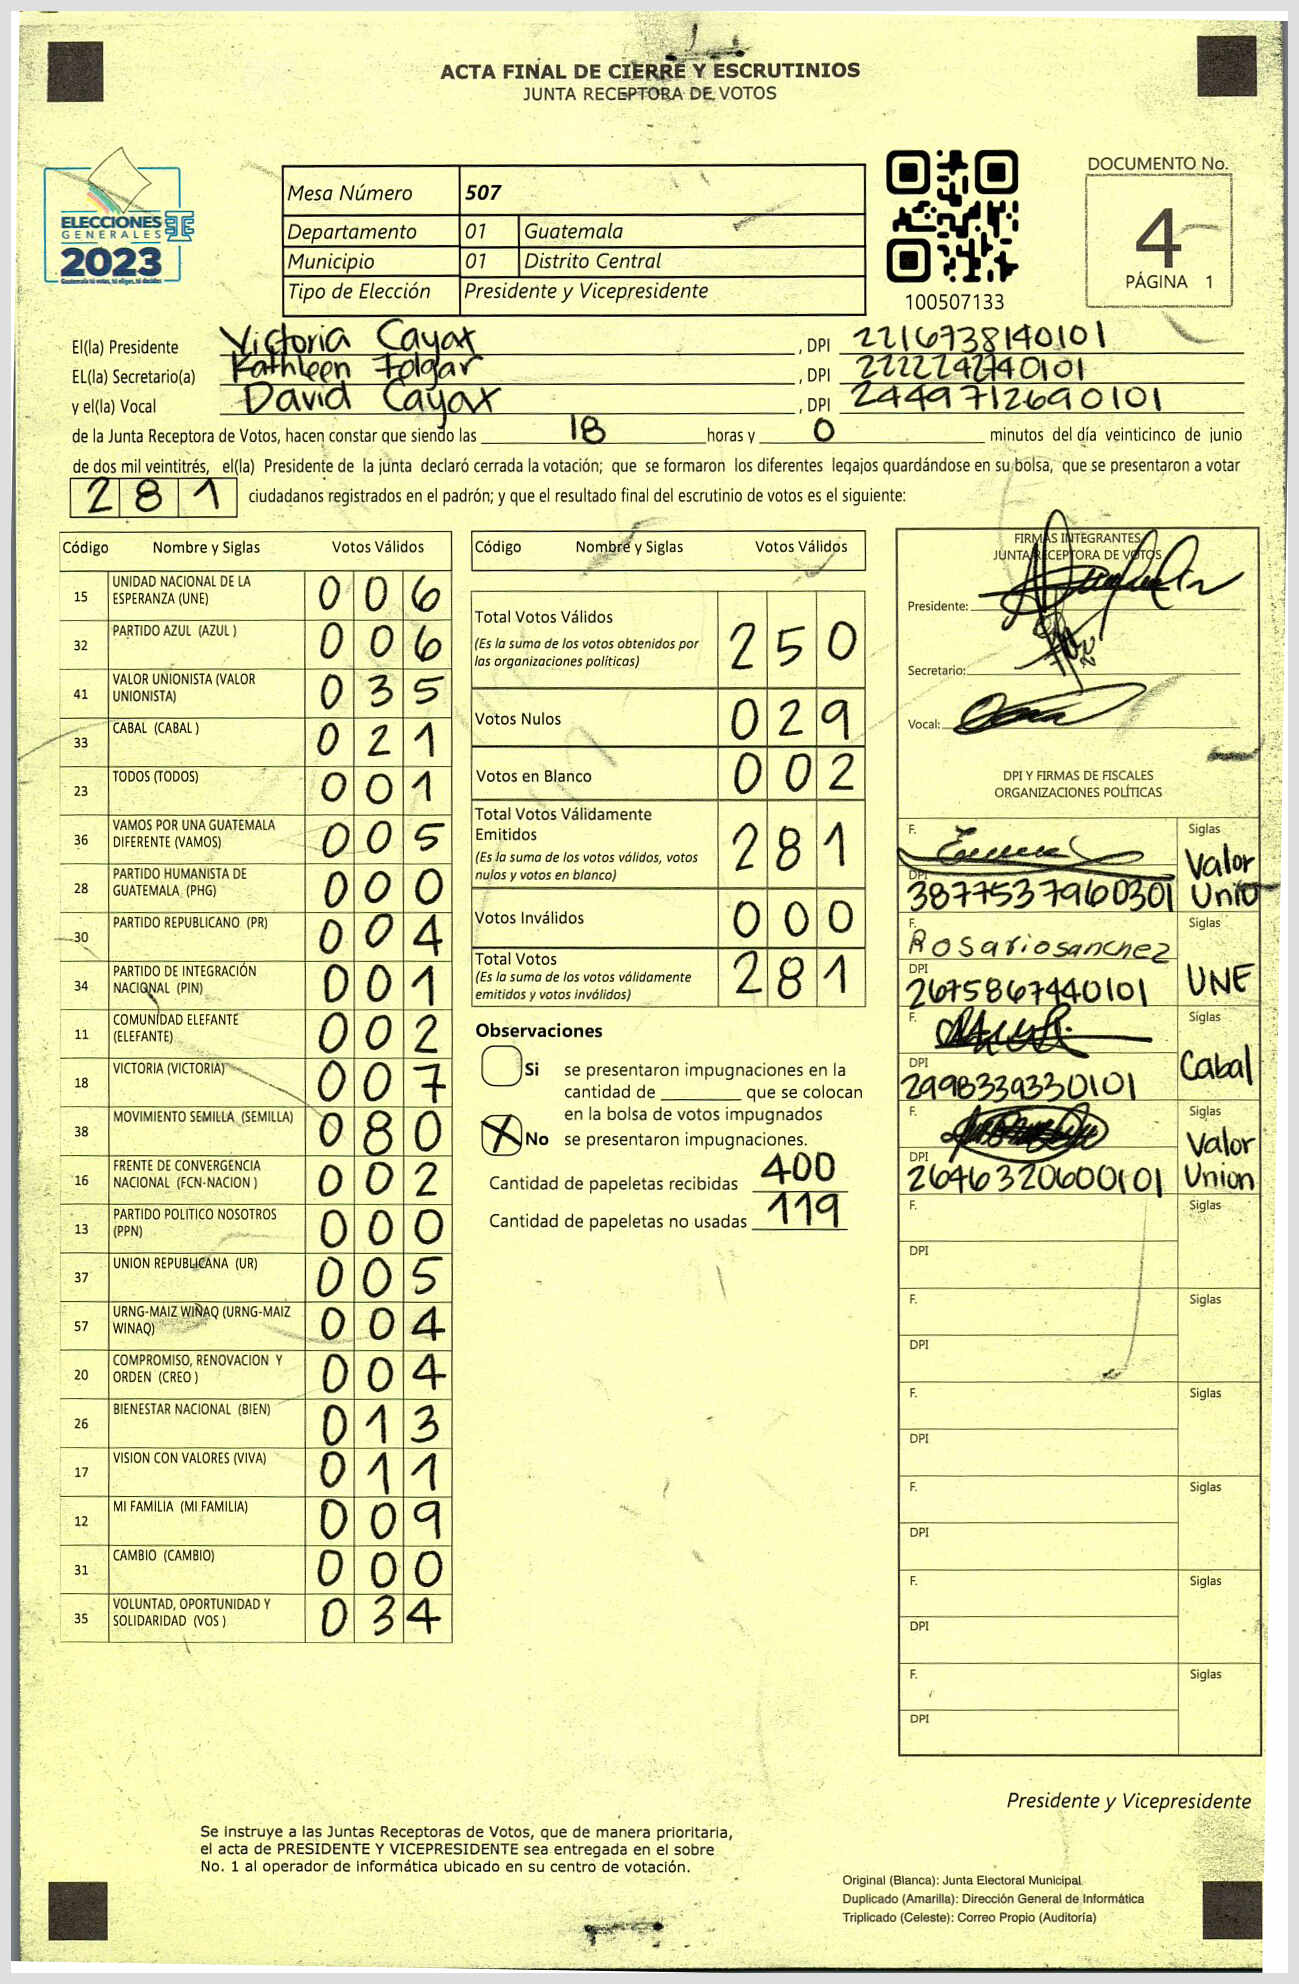 ACTA FINAL DE CIERRE Y ESCRUTINIOS
JUNTA RECEPTORA DE VOTOS
ELECCIONES
GENERALES
2023
Guatemala tú votas, tú eliges, tú decides
Mesa Número 507
Departamento 01 Guatemala
Municipio 01 Distrito Central
Tipo de Elección Presidente y Vicepresidente
100507133
DOCUMENTO No.
4
PÁGINA 1
El(la) Presidente Victoria Cayax , DPI 2216738140101
EL(la) Secretario(a) Kathleen Folgar , DPI 2222242740101
y el(la) Vocal David Cayax , DPI 2449712690101
de la Junta Receptora de Votos, hacen constar que siendo las 18 horas y 0 minutos del día veinticinco de junio
de dos mil veintitrés, el(la) Presidente de la junta declaró cerrada la votación; que se formaron los diferentes legajos guardándose en su bolsa, que se presentaron a votar
281 ciudadanos registrados en el padrón; y que el resultado final del escrutinio de votos es el siguiente:
Código Nombre y Siglas Votos Válidos
15 UNIDAD NACIONAL DE LA ESPERANZA (UNE) 006
32 PARTIDO AZUL (AZUL ) 006
41 VALOR UNIONISTA (VALOR UNIONISTA) 035
33 CABAL (CABAL ) 021
23 TODOS (TODOS) 001
36 VAMOS POR UNA GUATEMALA DIFERENTE (VAMOS) 005
28 PARTIDO HUMANISTA DE GUATEMALA (PHG) 000
30 PARTIDO REPUBLICANO (PR) 004
34 PARTIDO DE INTEGRACIÓN NACIONAL (PIN) 001
11 COMUNIDAD ELEFANTE (ELEFANTE) 002
18 VICTORIA (VICTORIA) 007
38 MOVIMIENTO SEMILLA (SEMILLA) 080
16 FRENTE DE CONVERGENCIA NACIONAL (FCN-NACION ) 002
13 PARTIDO POLITICO NOSOTROS (PPN) 000
37 UNION REPUBLICANA (UR) 005
57 URNG-MAIZ WINAQ (URNG-MAIZ WINAQ) 004
20 COMPROMISO, RENOVACION Y ORDEN (CREO ) 004
26 BIENESTAR NACIONAL (BIEN) 013
17 VISION CON VALORES (VIVA) 011
12 MI FAMILIA (MI FAMILIA) 009
31 CAMBIO (CAMBIO) 000
35 VOLUNTAD, OPORTUNIDAD Y SOLIDARIDAD (VOS ) 034
Código Nombre y Siglas Votos Válidos
Total Votos Válidos 250
(Es la suma de los votos obtenidos por
las organizaciones políticas)
Votos Nulos 029
Votos en Blanco 002
Total Votos Válidamente
Emitidos 281
(Es la suma de los votos válidos, votos
nulos y votos en blanco)
Votos Inválidos 000
Total Votos 281
(Es la suma de los votos válidamente
emitidos y votos inválidos)
Observaciones
Si se presentaron impugnaciones en la
cantidad de ________ que se colocan
en la bolsa de votos impugnados
X No se presentaron impugnaciones.
Cantidad de papeletas recibidas 400
Cantidad de papeletas no usadas 119
FIRMAS INTEGRANTES
JUNTA RECEPTORA DE VOTOS
Presidente:
Secretario:
Vocal:
DPI Y FIRMAS DE FISCALES
ORGANIZACIONES POLÍTICAS
F. Siglas
Valor
DPI
3877537960301 Unio
F. Siglas
Rosario sanchez
DPI UNE
2675867440101
F. Siglas
DPI Cabal
2998339330101
F. Siglas
Valor
DPI
2646320600101 Union
F. Siglas
DPI
F. Siglas
DPI
F. Siglas
DPI
F. Siglas
DPI
F. Siglas
DPI
F. Siglas
DPI
Presidente y Vicepresidente
Se instruye a las Juntas Receptoras de Votos, que de manera prioritaria,
el acta de PRESIDENTE Y VICEPRESIDENTE sea entregada en el sobre
No. 1 al operador de informática ubicado en su centro de votación.
Original (Blanca): Junta Electoral Municipal
Duplicado (Amarilla): Dirección General de Informática
Triplicado (Celeste): Correo Propio (Auditoría)